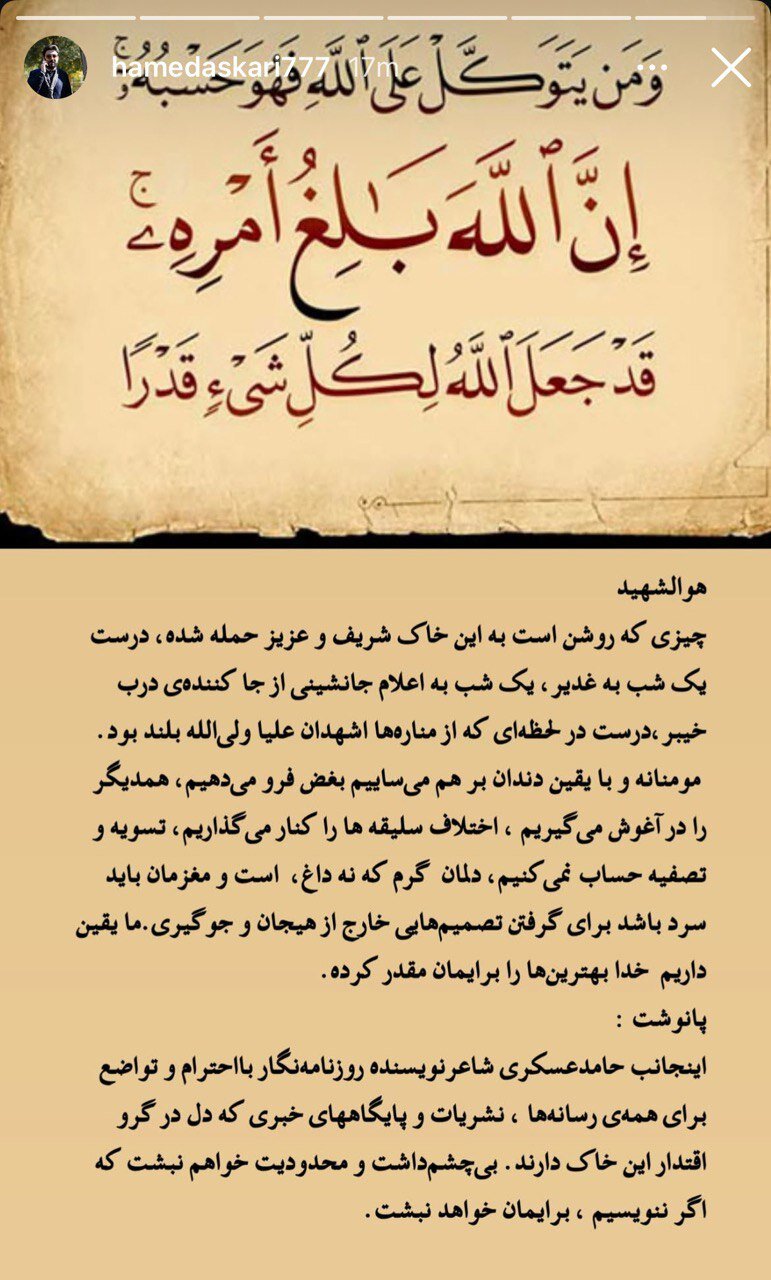 hamedaskari777 17m
وَمَن يَتَوَكَّلْ عَلَى ٱللَّهِ فَهُوَ حَسْبُهُۥٓ ۚ
إِنَّ ٱللَّهَ بَـٰلِغُ أَمْرِهِۦ ۚ
قَدْ جَعَلَ ٱللَّهُ لِكُلِّ شَىْءٍ قَدْرًا
هوالشهید
چیزی که روشن است به این خاک شریف و عزیز حمله شده، درست
یک شب به غدیر ، یک شب به اعلام جانشینی از جا کننده‌ی درب
خیبر ،درست در لحظه‌ای که از مناره‌ها اشهدان علیا ولی‌الله بلند بود.
مومنانه و با یقین دندان بر هم می‌ساییم بغض فرو می‌دهیم، همدیگر
را در آغوش می‌گیریم ، اختلاف سلیقه ها را کنار می‌گذاریم، تسویه و
تصفیه حساب نمی‌کنیم، دلمان گرم که نه داغ، است و مغزمان باید
سرد باشد برای گرفتن تصمیم‌هایی خارج از هیجان و جوگیری.ما یقین
داریم خدا بهترین‌ها را برایمان مقدر کرده.
پانوشت :
اینجانب حامدعسکری شاعرنویسنده روزنامه‌نگار بااحترام و تواضع
برای همه‌ی رسانه‌ها ، نشریات و پایگاههای خبری که دل در گرو
اقتدار این خاک دارند. بی‌چشم‌داشت و محدودیت خواهم نبشت که
اگر ننویسیم ، برایمان خواهد نبشت.